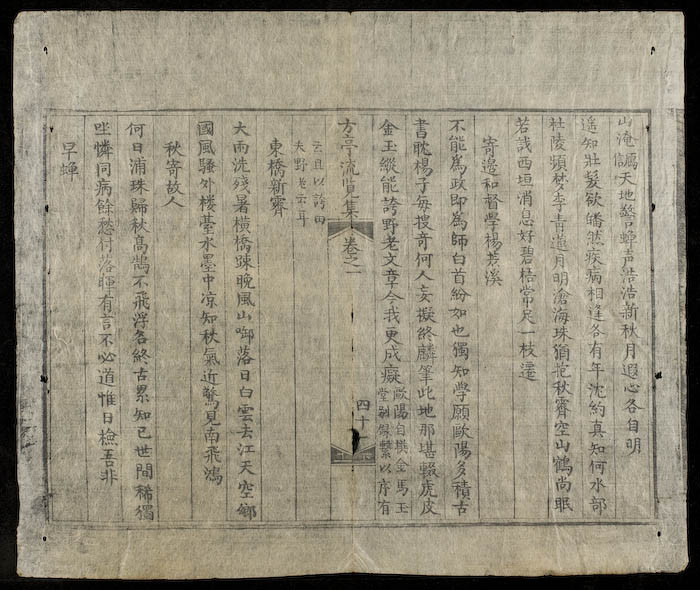 山淹信天地警蟬声浩浩新秋月遐心各自明
遥知壯髮欲皤然疾病相逢各有年沈約真知何水部
杜陵頻梦李青蓮月明滄海珠猶抱秋霽空山鶴尚眠
若西垣消息好碧梧常足一枝遷
寄邊和督學楊若溪
不能為政即為師白首紛如也獨知學願歐陽多積古
書耽楊子每搜奇何人妄擬終麟筆此地那堪輟虎皮
金玉縱能誇野老文章今我更成癡
歐陽自撰金馬玉
堂以序有
方亭流覽集
卷之一
四十一
云且以誇田
夫野老云耳
東橋新霽
大雨洗殘暑横橋踈晚風山啣落日白雲去江天空鄉
國風騷外楼臺水墨中凉知秋氣近驚見南飛鴻
秋寄故人
何日浦珠歸秋高鵲不飛浮名終古累知己世間稀獨
坐憐同病餘愁付落暉有言不必道惟日檢吾非
早蟬